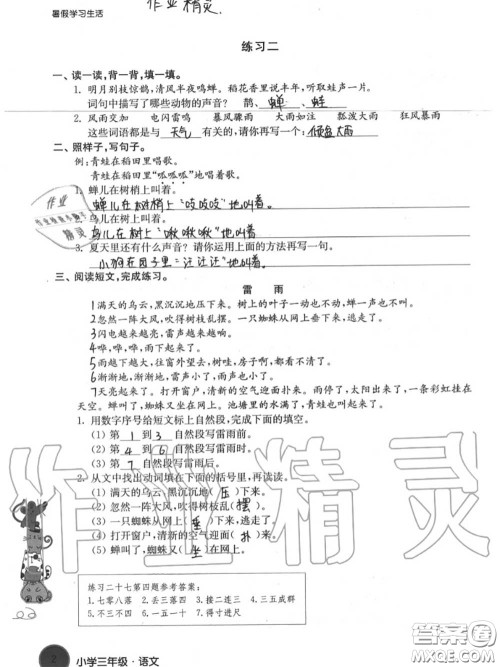 暑假学习生活
作业精灵.
练习二
一、读一读,背一背,填一填。
1. 明月别枝惊鹊,清风半夜鸣蝉。稻花香里说丰年,听取蛙声一片。
词句中描写了哪些动物的声音? 鹊、 蝉 、 蛙
2. 风雨交加 电闪雷鸣 暴风骤雨 大雨如注 瓢泼大雨 狂风暴雨
这些词语都是与 天气 有关的,请你再写一个: 倾盆大雨
二、照样子,写句子。
例:青蛙在稻田里唱歌。
青蛙在稻田里“呱呱呱”地唱着歌。
1. 蝉儿在树梢上叫着。
蝉儿在树梢上“吱吱吱”地叫着。
2. 鸟儿在树上叫着。
鸟儿在树上“啾啾啾”地叫着。
3. 夏天里还有什么声音?请你运用上面的方法再写一句。
小狗在园子里“汪汪汪”地叫着。
三、阅读短文,完成练习。
雷 雨
1满天的乌云,黑沉沉地压下来。树上的叶子一动也不动,蝉一声也不叫。
2忽然一阵大风,吹得树枝乱摆。一只蜘蛛从网上垂下来,逃走了。
3闪电越来越亮,雷声越来越响。
4哗,哗,哗,雨下起来了。
5雨越下越大,往窗外望去,树哇,房子啊,都看不清了。
6渐渐地,渐渐地,雷声小了,雨声也小了。
7天亮起来了。打开窗户,清新的空气迎面扑来。雨停了,太阳出来了,一条彩虹挂在
天空。蝉叫了,蜘蛛又坐在网上。池塘里的水满了,青蛙也叫起来了。
1. 用数字序号给短文标上自然段,完成下面的填空。
(1) 第 1 到 3 自然段写雷雨前。
(2) 第 4 到 6 自然段写雷雨时。
(3) 第 7 自然段写雷雨后。
2. 从文中找出动词填在下面的括号里,再读读。
(1) 满天的乌云,黑沉沉地( 压 )下来。
(2) 忽然一阵大风,吹得树枝乱( 摆 )。
(3) 一只蜘蛛从网上( 垂 )下来,逃走了。
(4) 打开窗户,清新的空气迎面( 扑 )来。
(5) 蝉叫了,蜘蛛又( 坐 )在网上。
作业精灵
练习二十七第四题参考答案:
1.七零八落 2.丢三落四 3.接二连三 4.三五成群
5.不三不四 6.一五一十 7.得寸进尺
2 小学三年级·语文
答案圈
MXQE.COM